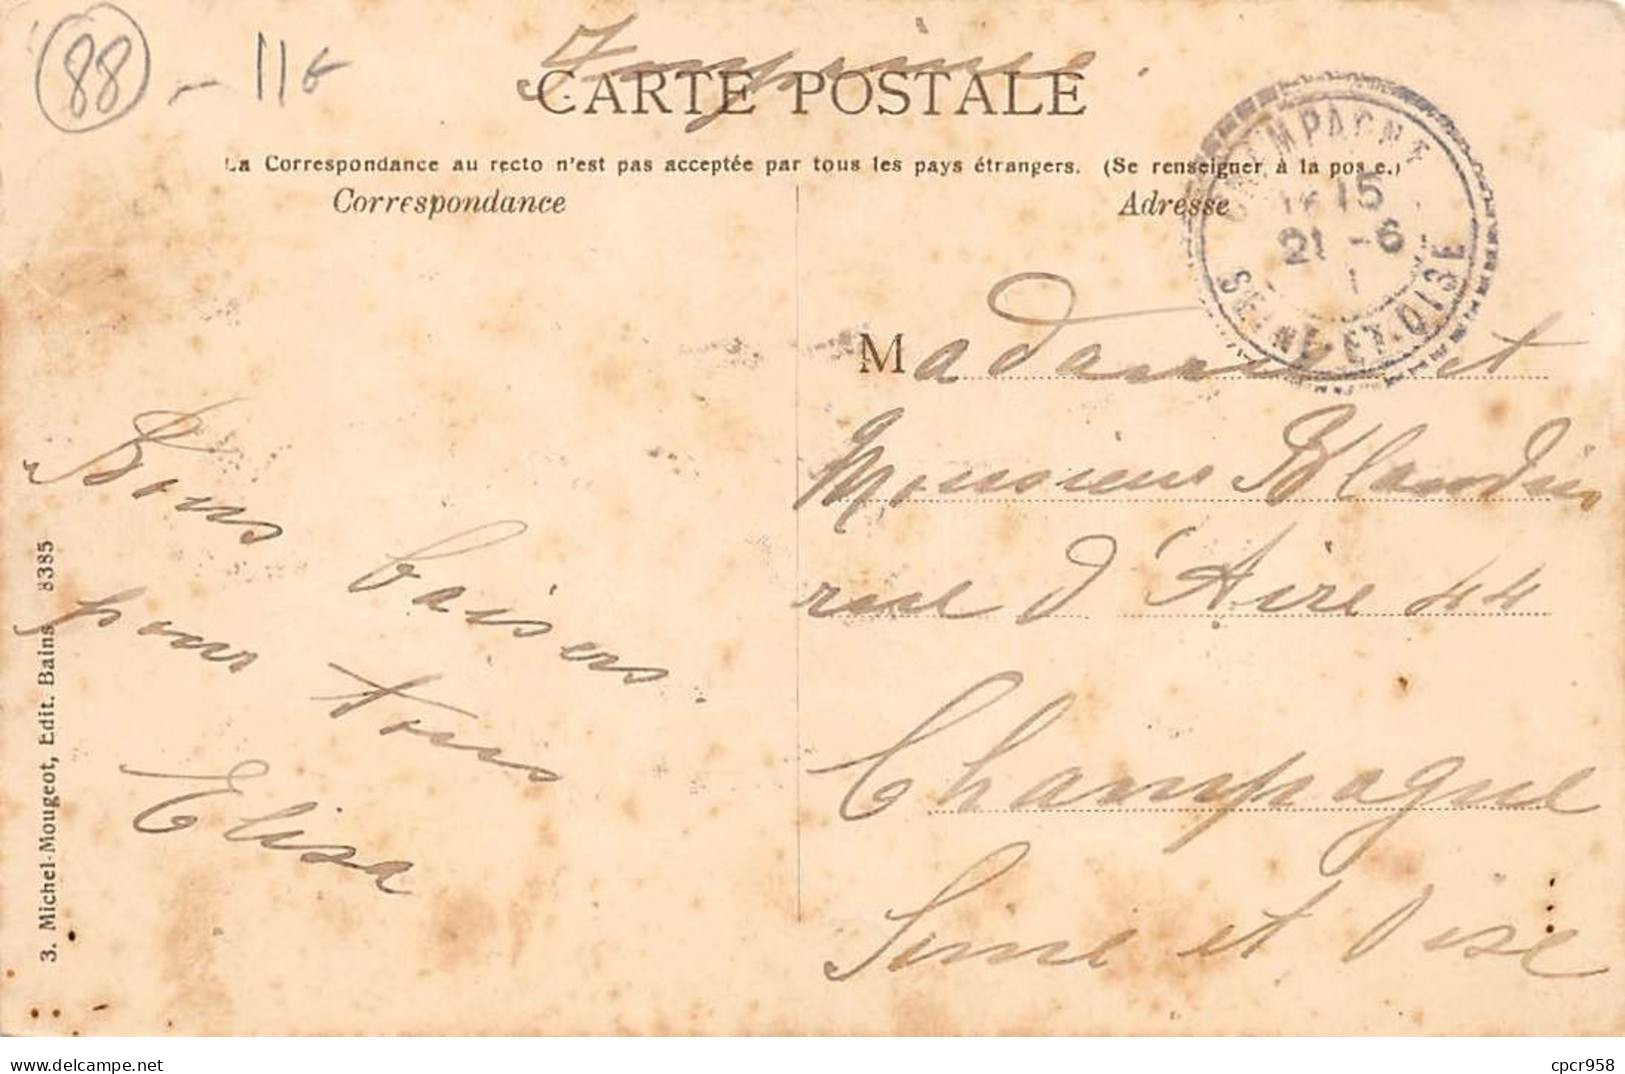 88 - 11€
Imprimé.
CARTE POSTALE
La Correspondance au recto n'est pas acceptée par tous les pays étrangers. (Se renseigner à la poste.)
Correspondance
Adresse
CHAMPAGNE
15
21 - 6
SEINE-ET-OISE
Bons baisers
pour tous
Elisa
Madame et
Monsieur Blandin
rue d'Aire 44
Champagne
Seine et Oise
3. Michel-Mougeot, Edit. Bains 8385
delcampe.net
cpcr958